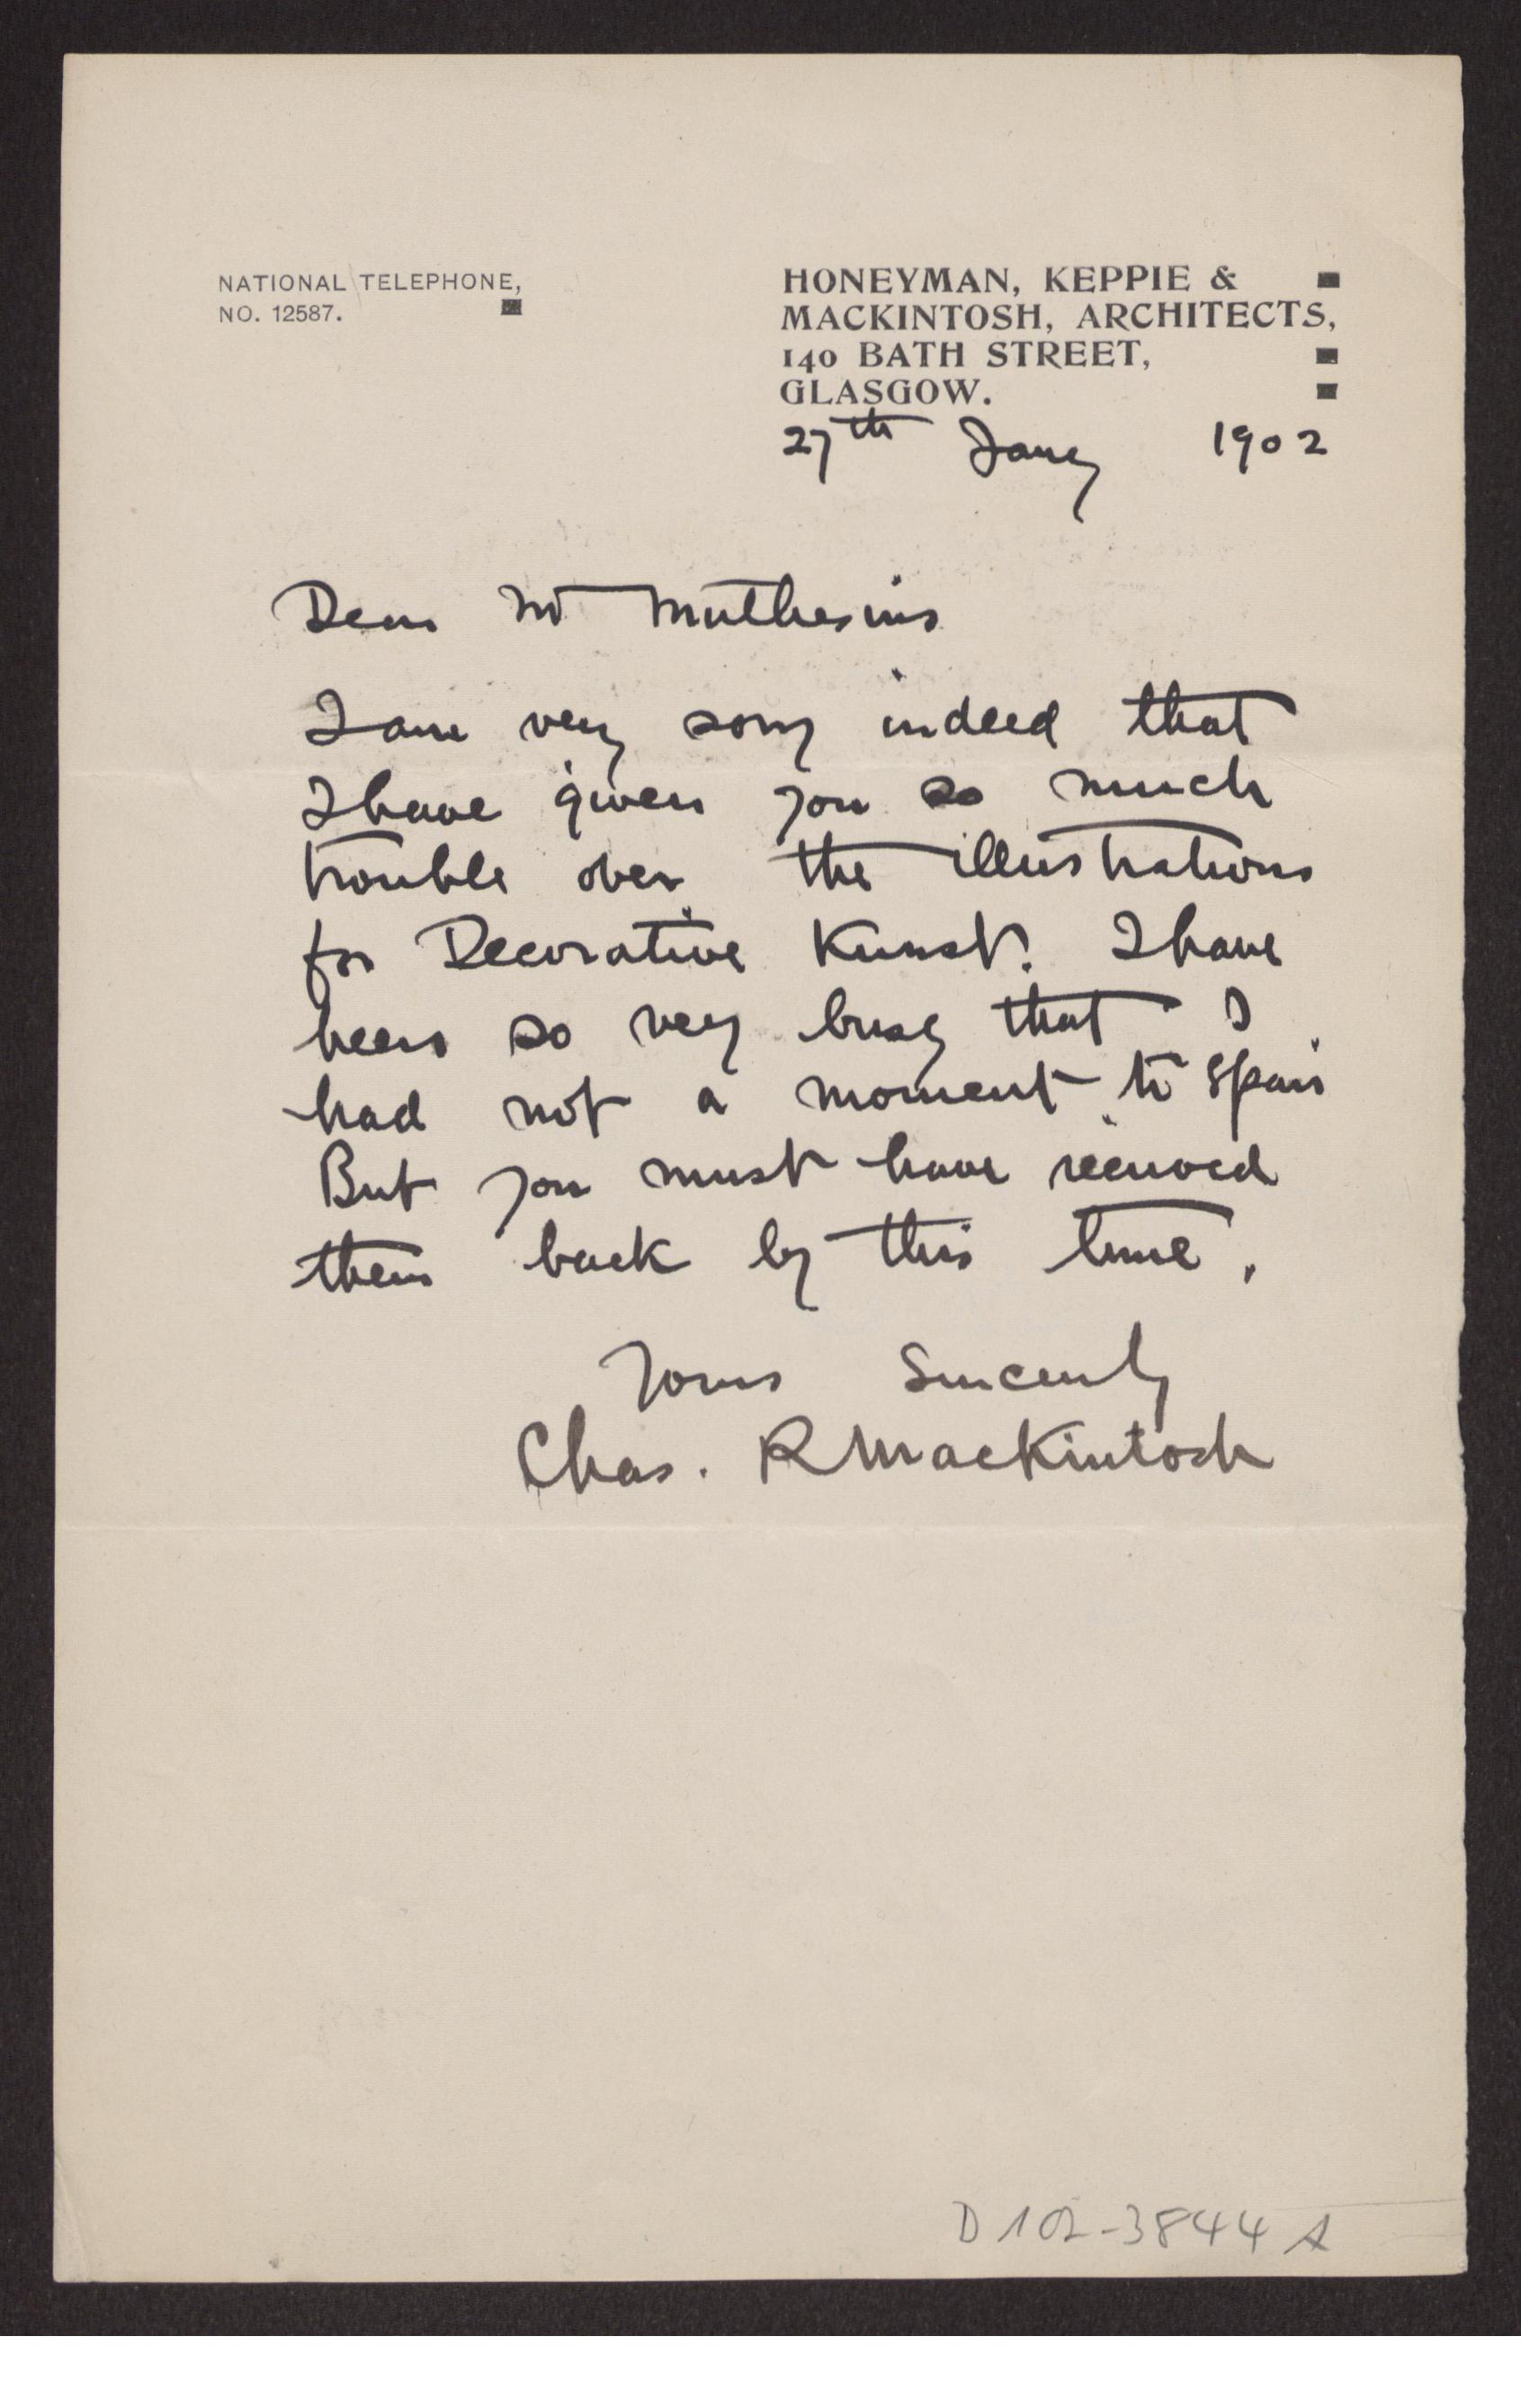 NATIONAL TELEPHONE,
NO. 12587.
HONEYMAN, KEPPIE &
MACKINTOSH, ARCHITECTS,
140 BATH STREET,
GLASGOW.
27th Jany 1902
Dear Mr Muthesius
I am very sorry indeed that
I have given you so much
trouble over the illustrations
for Decorative Kunst. I have
been so very busy that I
had not a moment to spair
But you must have received
them back by this time.
Yours Sincerely
Chas. R Mackintosh
D 102-3844 A